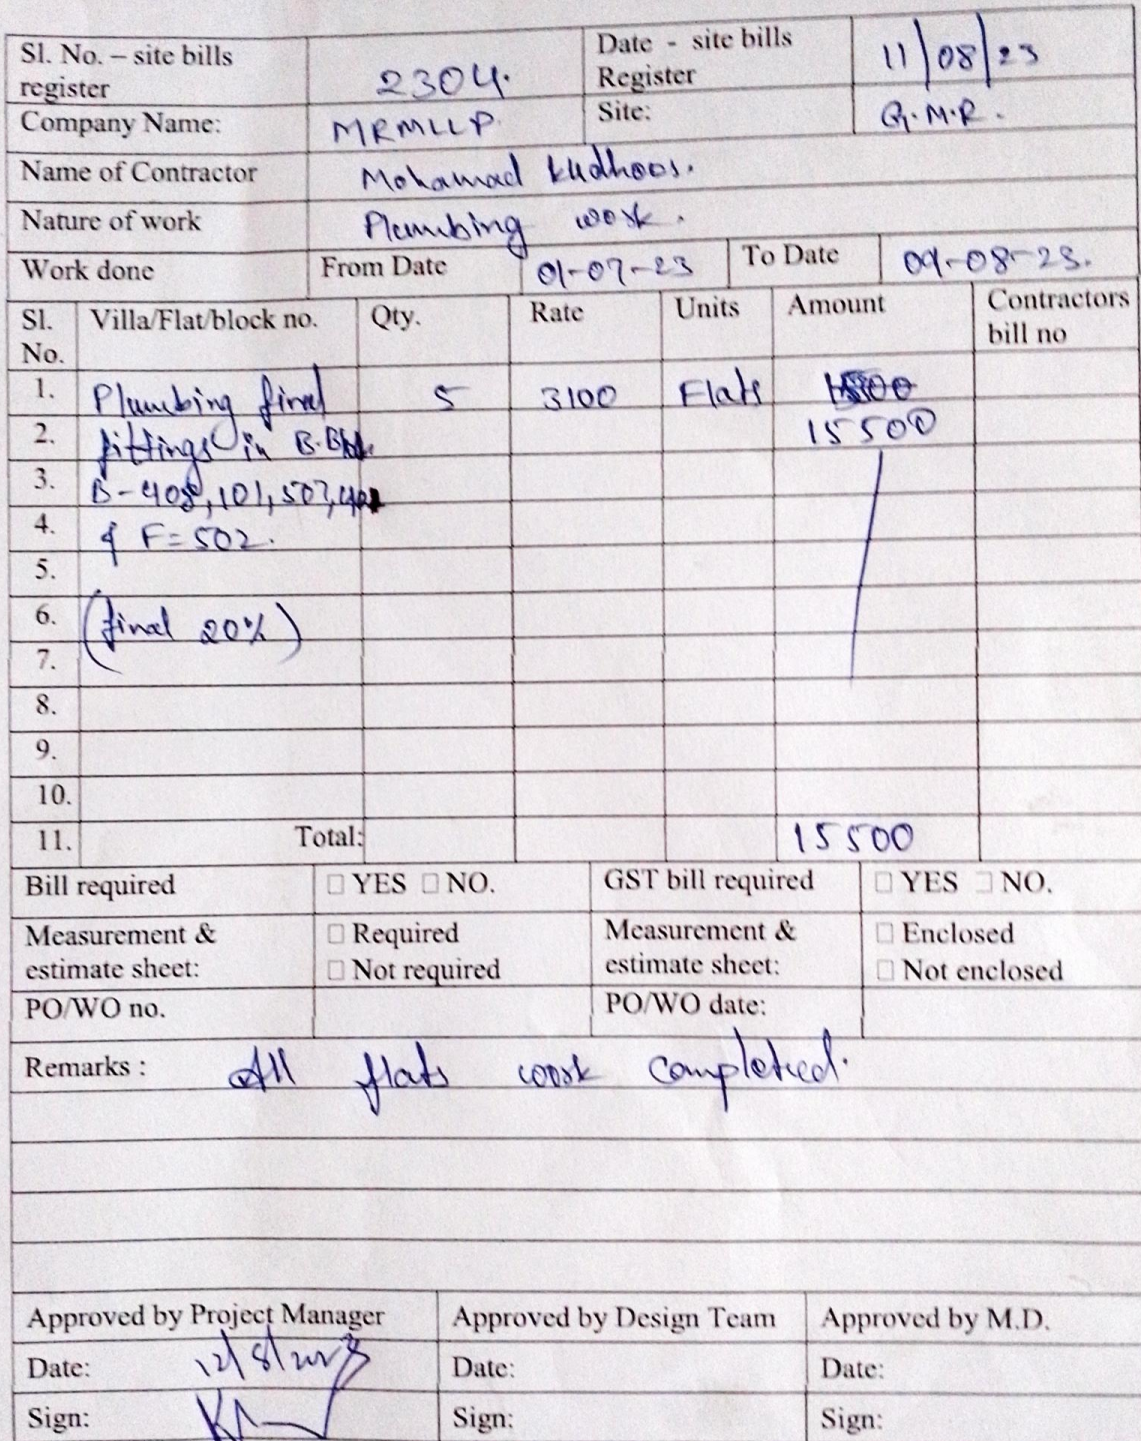 Sl. No. – site bills register 2304. Date - site bills Register 11/08/23
Company Name: MRMLLP. Site: G.M.R.
Name of Contractor Mohamad
Nature of work Plumbing work.
Work done From Date 01-07-23 To Date 09-08-23.
Sl. No. Villa/Flat/block no. Qty. Rate Units Amount Contractors bill no
1. Plumbing final 5 3100 Flats
2. fittings in B. 15500
3. 101, 507,
4. & F=502.
5.
6. (final 20%)
7.
8.
9.
10.
11. Total: 15500
Bill required □ YES □ NO. GST bill required □ YES □ NO.
Measurement & estimate sheet: □ Required □ Not required Measurement & estimate sheet: □ Enclosed □ Not enclosed
PO/WO no. PO/WO date:
Remarks : All flats work completed.
Approved by Project Manager Approved by Design Team Approved by M.D.
Date: 12/8/2023 Date: Date:
Sign: Sign: Sign: